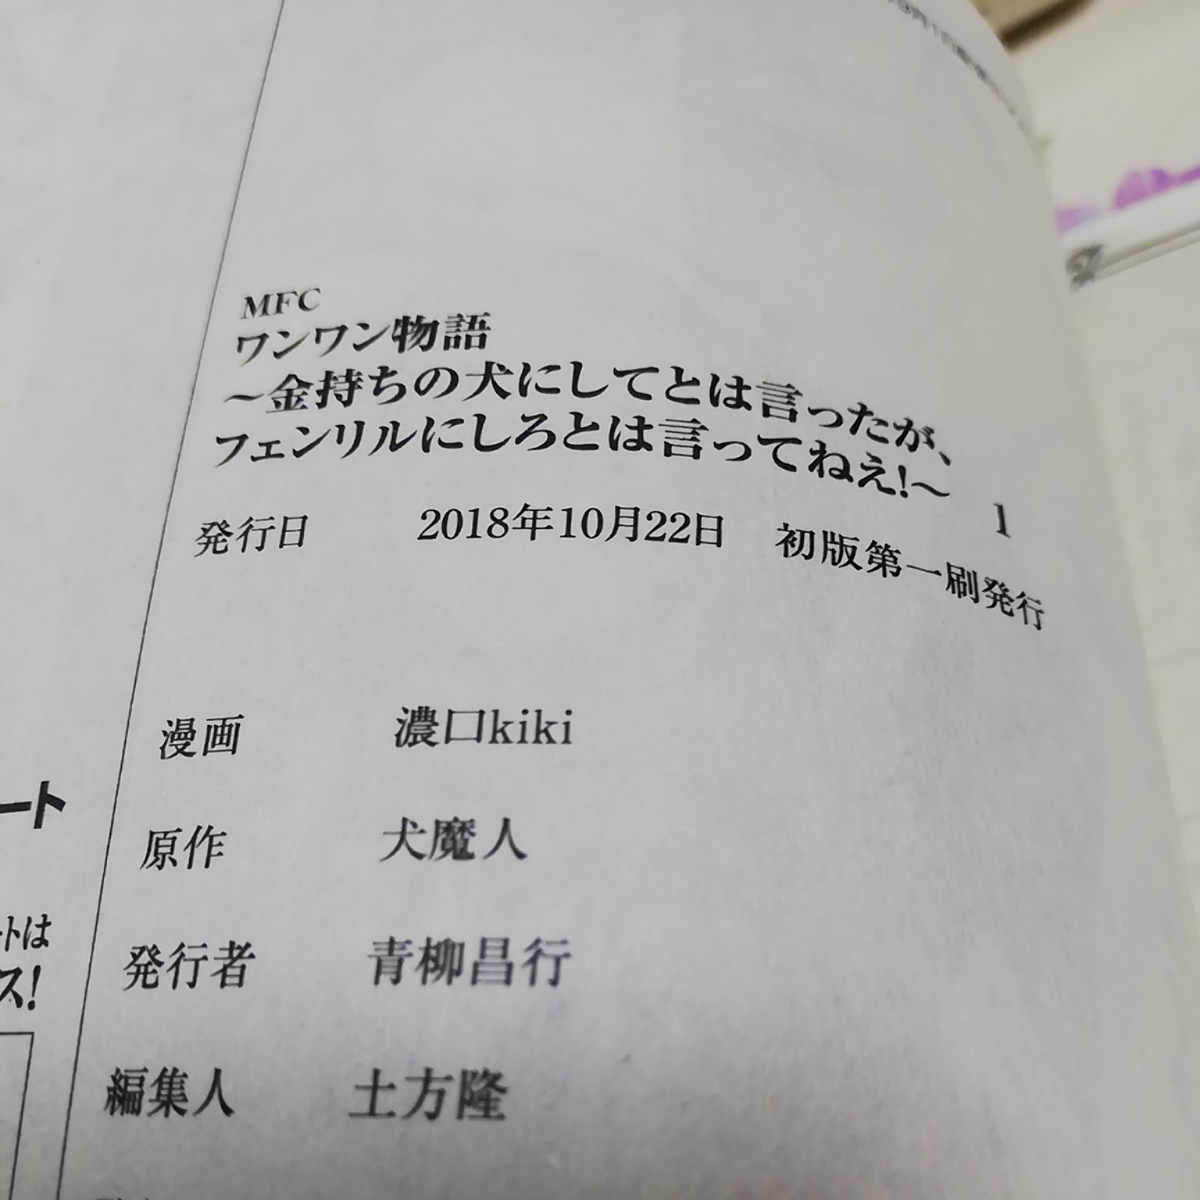 MFC
ワンワン物語
～金持ちの犬にしてとは言ったが、
フェンリルにしろとは言ってねえ!～ 1
発行日 2018年10月22日 初版第一刷発行
漫画 濃口kiki
原作 犬魔人
発行者 青柳昌行
編集人 土方隆
ート
ートは
ス!